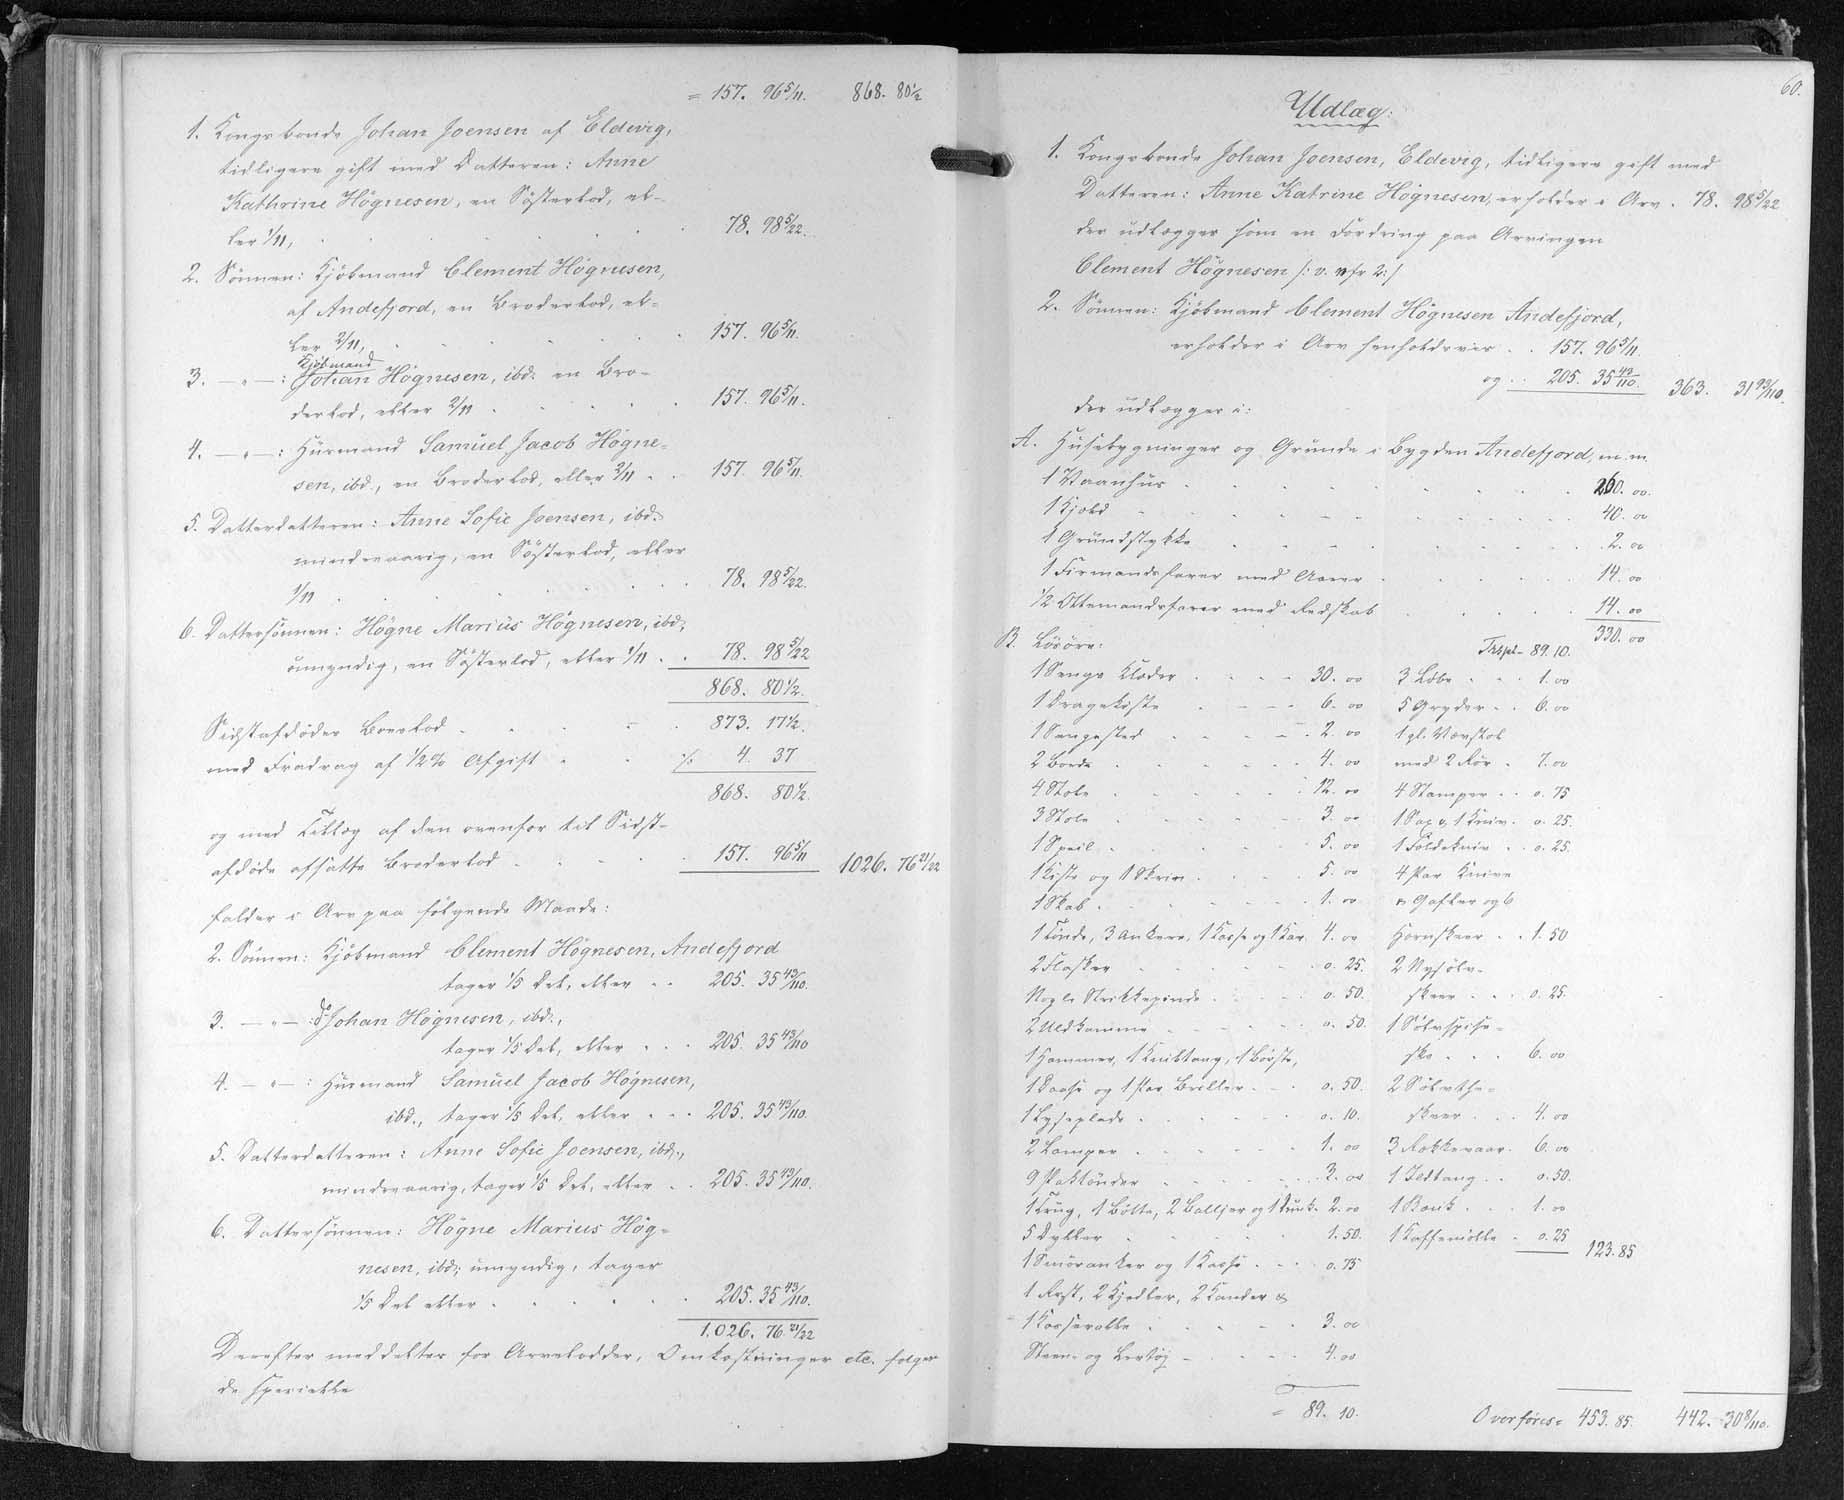 = 157. 96 5/11. 868. 80 1/2
1. Kongsbonde Johan Joensen af Eldevig,
tidligere gift med Datteren: Anne
Kathrine Högnesen, en Søsterlod, el-
ler 1/11, . . . 78. 98 5/22.
2. Sönnen: Kjöbmand Clement Högnesen,
af Andefjord, en Broderlod, el-
ler 2/11, . . . 157. 96 5/11.
Kjöbmand
3. — " — : Johan Högnesen, ibd. en Bro-
derlod, eller 2/11 . . . 157. 96 5/11.
4. — " — : Husmand Samuel Jacob Högne-
sen, ibd., en Broderlod, eller 2/11 . . 157. 96 5/11.
5. Datterdatteren: Anne Sofie Joensen, ibd.
mindreaarig, en Søsterlod, eller
1/11 . . . 78. 98 5/22.
6. Dattersönnen: Högne Marius Högnesen, ibd.,
umyndig, en Søsterlod, eller 1/11 . . 78. 98 5/22
868. 80 1/2.
Sidstafdödes Boeslod . . . 873. 17 1/2.
med Fradrag af 1/2 % Afgift . . ./. 4. 37
868. 80 1/2.
og med Tillæg af den ovenfor til Sidst-
afdøde afsatte Broderlod . . . 157. 96 5/11 1026. 76 21/22
falder i Arv paa følgende Maade:
2. Sönnen: Kjöbmand Clement Högnesen, Andefjord
tager 1/5 Del, eller . . 205. 35 43/110.
3. — " — : do Johan Högnesen, ibd.,
tager 1/5 Del, eller . . . 205. 35 43/110
4. — " — : Husmand Samuel Jacob Högnesen,
ibd., tager 1/5 Del, eller . . . 205. 35 43/110.
5. Datterdatteren: Anne Sofie Joensen, ibd.,
mindreaarig, tager 1/5 Del, eller . . 205. 35 43/110.
6. Dattersönnen: Högne Marius Hög-
nesen, ibd., umyndig, tager
1/5 Del eller . . . 205. 35 43/110.
1.026. 76. 21/22
Derefter meddeltes for Arvelodder, Omkostninger etc. følgen-
de specielle
60.
Udlæg:
1. Kongsbonde Johan Joensen, Eldevig, tidligere gift med
Datteren: Anne Katrine Högnesen, erholder i Arv . 78. 98 5/22
der udlægges som en Fordring paa Arvingen
Clement Högnesen
2. Sönnen: Kjöbmand Clement Högnesen Andefjord,
erholder i Arv henholdsvis . . 157. 96 5/11.
og . . 205. 35 43/110. 363. 31 93/110.
der udlægges i:
A. Husebygninger og Grunde i Bygden Andefjord, m. m.
1 Vaanhus . . . 260. 00.
1 Kjæld . . . 40. 00
1 Grundstykke . . . 2. 00
1 Firmandsfarer med Aarer . . . 14. 00
1/2 Ottemandsfarer med Redskab . . . 14. 00
330. 00
B. Løsöre: Trspt= 89. 10.
1 Senge Klæder . . . 30. 00 3 Löbe . . . 1. 00
1 Dragekiste . . . 6. 00 5 Gryder . . 6. 00
1 Sengested . . . 2. 00 1 gl. Vævstol
2 Borde . . . 4. 00 med 2 Rör . 7. 00
4 Stole . . . 12. 00 4 Stamper . . 0. 75
3 Stole . . . 3. 00 1 Sax o, 1 Kniv . 0. 25.
1 Speil . . . 5. 00 1 Foldekniv . . 0. 25.
1 Kiste og 1 Skrin . . . 5. 00 4 Par Knive
1 Skab . . . 1. 00 o Gafler og 6
1 Tönde, 3 Ankere, 1 Kasse og 1 Kar 4. 00 Hornskeer . . 1. 50
2 Flasker . . . 0. 25. 2 Nysölv-
Nogle Strikkepinde . . . 0. 50. skeer . . . 0. 25.
2 Uldkamme . . . 0. 50. 1 Sölvspise-
1 Hammer, 1 Knibtang, 1 Börste, ske . . . 6. 00
1 Daase og 1 Par Briller . . . 0. 50. 2 Sölvthe-
1 Lyseplade . . . 0. 10. skeer . . . 4. 00
2 Lamper . . . 1. 00 3 Rokkevaar . 6. 00
9 Saltönder . . . 2. 00 1 Ildtang . . 0. 50.
1 Krug, 1 Bötte, 2 Balljer og 1 Dunk . 2. 00 1 Bænk . . . 1. 00
5 Dyller . . . 1. 50. 1 Kaffemölle . 0. 25 123. 85
1 Smöranker og 1 Kasse . . . 0. 75
1 Rist, 2 Kjedler, 2 Kander &
1 Kasserolle . . . 3. 00
Steen- og Leertöj . . . 4. 00
= 89. 10. Overföres= 453. 85. 442. 30 8/110.